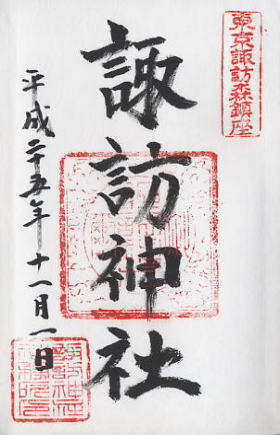 東京諏訪森鎮座
諏訪神社
平成二十五年十一月一日